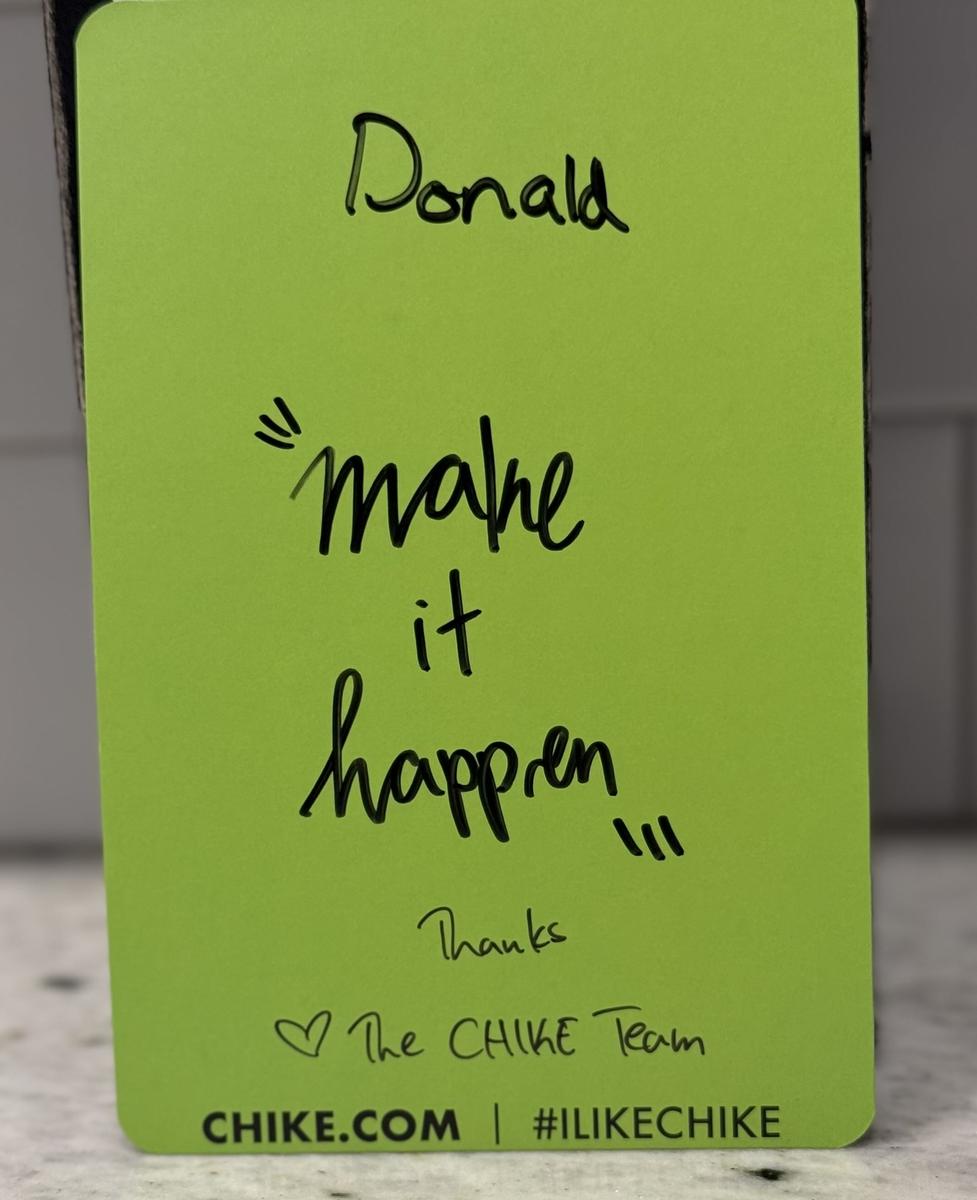 Donald
"make
it
happen"
Thanks
♡ The CHIKE Team
CHIKE.COM | #ILIKECHIKE